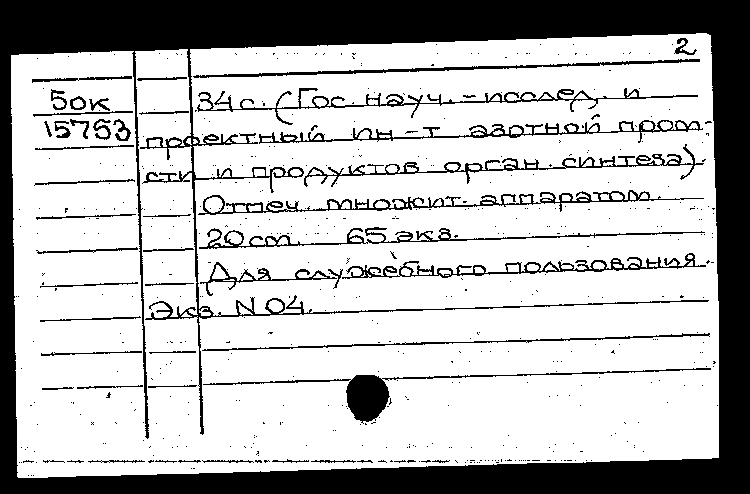 2
50к 34с. (Гос. науч.-исслед. и
15753 проектный ин-т азотной пром-
сти и продуктов орган. синтеза).
Отпеч. множит. аппаратом.
20 cm. 65 экз.
Для служебного пользования.
Экз. N 04.